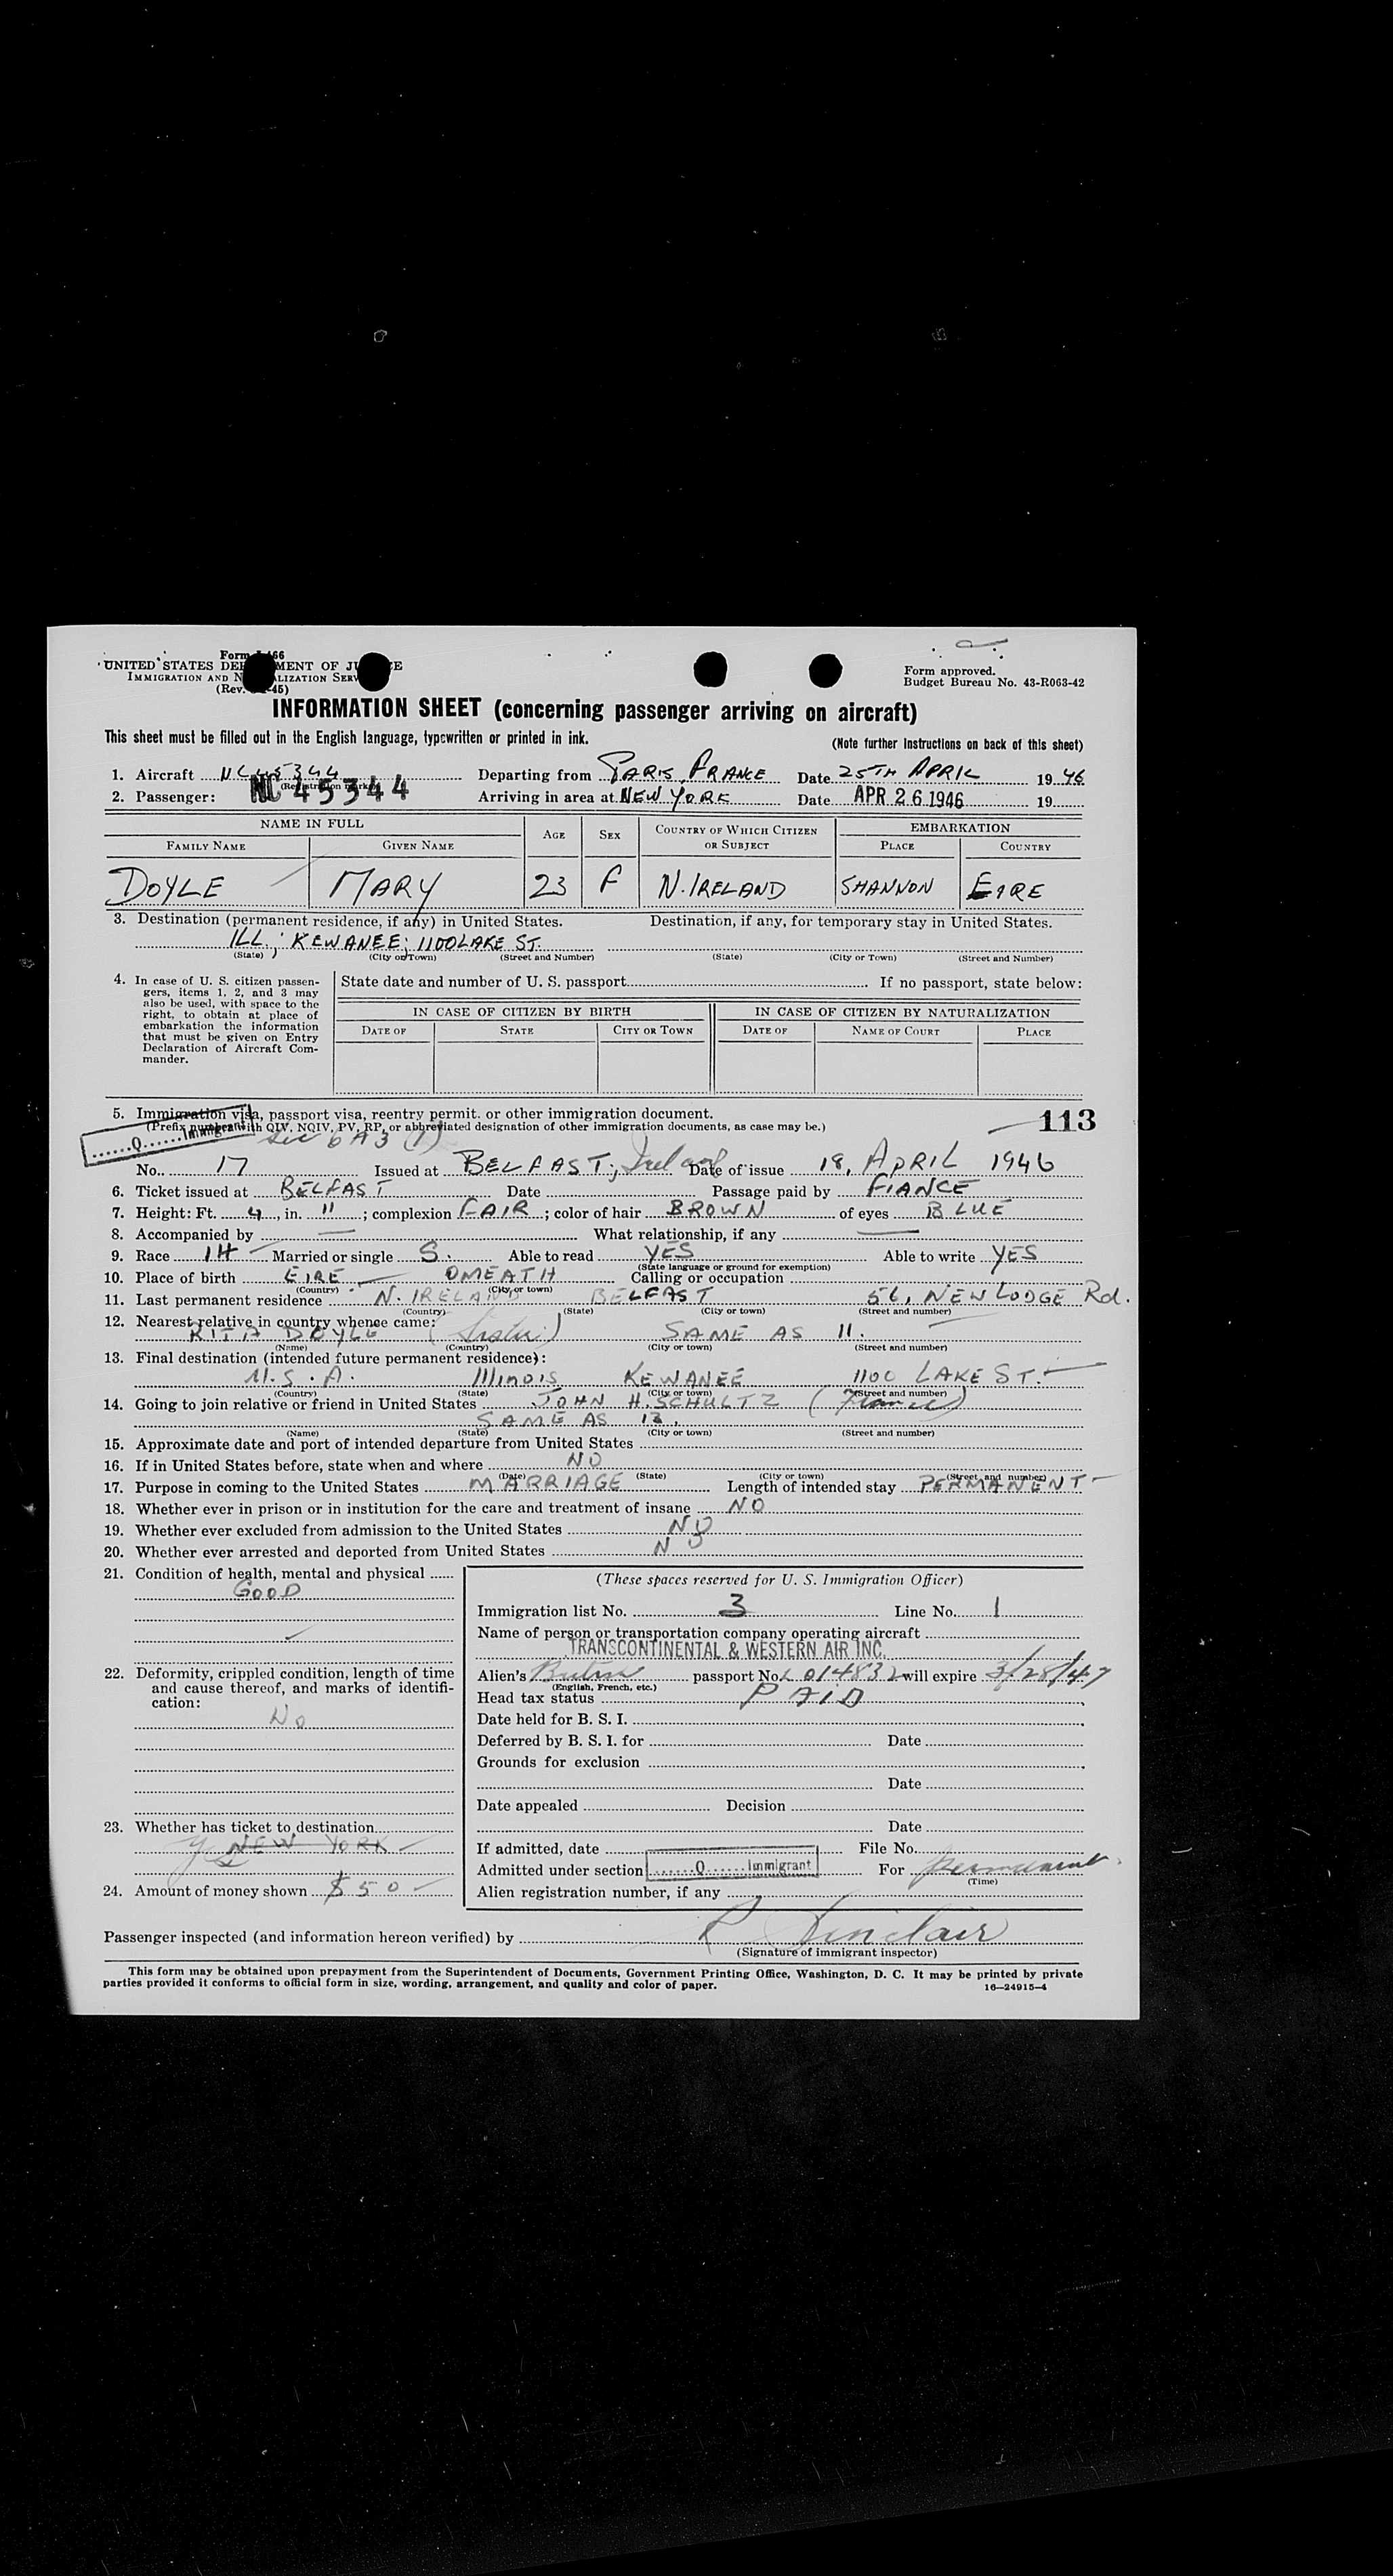 Form I-466
UNITED STATES DEPARTMENT OF JUSTICE
IMMIGRATION AND NATURALIZATION SERVICE
(Rev. -45)
Form approved.
Budget Bureau No. 43-R063-42
INFORMATION SHEET (concerning passenger arriving on aircraft)
This sheet must be filled out in the English language, typewritten or printed in ink.
(Note further instructions on back of this sheet)
1. Aircraft NC 45344 Departing from PARIS, FRANCE Date 25TH APRIL 1946
(Registration marks)
2. Passenger: NC 45344 Arriving in area at NEW YORK Date APR 26 1946 19
NAME IN FULL AGE SEX COUNTRY OF WHICH CITIZEN OR SUBJECT EMBARKATION
FAMILY NAME GIVEN NAME PLACE COUNTRY
DOYLE MARY 23 F N. IRELAND SHANNON EIRE
3. Destination (permanent residence, if any) in United States. Destination, if any, for temporary stay in United States.
ILL; KEWANEE; 1100 LAKE ST.
(State) (City or Town) (Street and Number) (State) (City or Town) (Street and Number)
4. In case of U. S. citizen passengers, items 1, 2, and 3 may also be used, with space to the right, to obtain at place of embarkation the information that must be given on Entry Declaration of Aircraft Commander.
State date and number of U. S. passport If no passport, state below:
IN CASE OF CITIZEN BY BIRTH IN CASE OF CITIZEN BY NATURALIZATION
DATE OF STATE CITY OR TOWN DATE OF NAME OF COURT PLACE
5. Immigration visa, passport visa, reentry permit, or other immigration document.
113
(Prefix number with QIV, NQIV, PV, RP, or abbreviated designation of other immigration documents, as case may be.)
Q Immigrant
Sec 6 A 3 (1)
No. 17 Issued at BELFAST, Ireland Date of issue 18, APRIL 1946
6. Ticket issued at BELFAST Date Passage paid by FIANCE
7. Height: Ft. 4, in. 11; complexion FAIR; color of hair BROWN of eyes BLUE
8. Accompanied by — What relationship, if any —
9. Race 14 Married or single S. Able to read YES Able to write YES
(State language or ground for exemption)
10. Place of birth EIRE OMEATH Calling or occupation
(Country) (City or town)
11. Last permanent residence N. IRELAND BELFAST 56, NEW LODGE Rd.
(Country) (State) (City or town) (Street and number)
12. Nearest relative in country whence came:
RITA DOYLE (Sister) SAME AS 11.
(Name) (Country) (City or town) (Street and number)
13. Final destination (intended future permanent residence):
U.S.A. Illinois KEWANEE 1100 LAKE ST.
(Country) (State) (City or town) (Street and number)
14. Going to join relative or friend in United States JOHN H. SCHULTZ (Fiance)
SAME AS 13.
(Name) (State) (City or town) (Street and number)
15. Approximate date and port of intended departure from United States
16. If in United States before, state when and where NO
(Date) (State) (City or town) (Street and number)
17. Purpose in coming to the United States MARRIAGE Length of intended stay PERMANENT
18. Whether ever in prison or in institution for the care and treatment of insane NO
19. Whether ever excluded from admission to the United States NO
20. Whether ever arrested and deported from United States NO
21. Condition of health, mental and physical
GOOD
22. Deformity, crippled condition, length of time and cause thereof, and marks of identification:
No
23. Whether has ticket to destination
Yes NEW YORK
24. Amount of money shown $50
(These spaces reserved for U. S. Immigration Officer)
Immigration list No. 3 Line No. 1
Name of person or transportation company operating aircraft
TRANSCONTINENTAL & WESTERN AIR INC.
Alien's British passport No. L 014832 will expire 3/28/47
(English, French, etc.)
Head tax status PAID
Date held for B. S. I.
Deferred by B. S. I. for Date
Grounds for exclusion
Date
Date appealed Decision
Date
If admitted, date File No.
Admitted under section Q Immigrant For permanent
(Time)
Alien registration number, if any
Passenger inspected (and information hereon verified) by R Sinclair
(Signature of immigrant inspector)
This form may be obtained upon prepayment from the Superintendent of Documents, Government Printing Office, Washington, D. C. It may be printed by private
parties provided it conforms to official form in size, wording, arrangement, and quality and color of paper.
16—24915-4